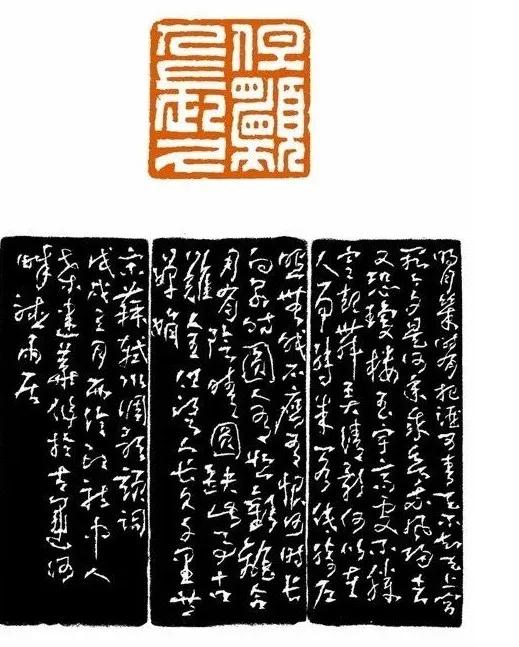 但願人長久
明月幾時有把酒問青天不知天上宮
闕今夕是何年我欲乘風歸去
又恐瓊樓玉宇高處不勝
寒起舞弄清影何似在
人間轉朱閣低綺戶
照無眠不應有恨何時長
向別時圓人有悲歡離合
月有陰晴圓缺此事古
難全但願人長久千里共
嬋娟
宋蘇軾水調歌頭詞
戊戌
聽雨居